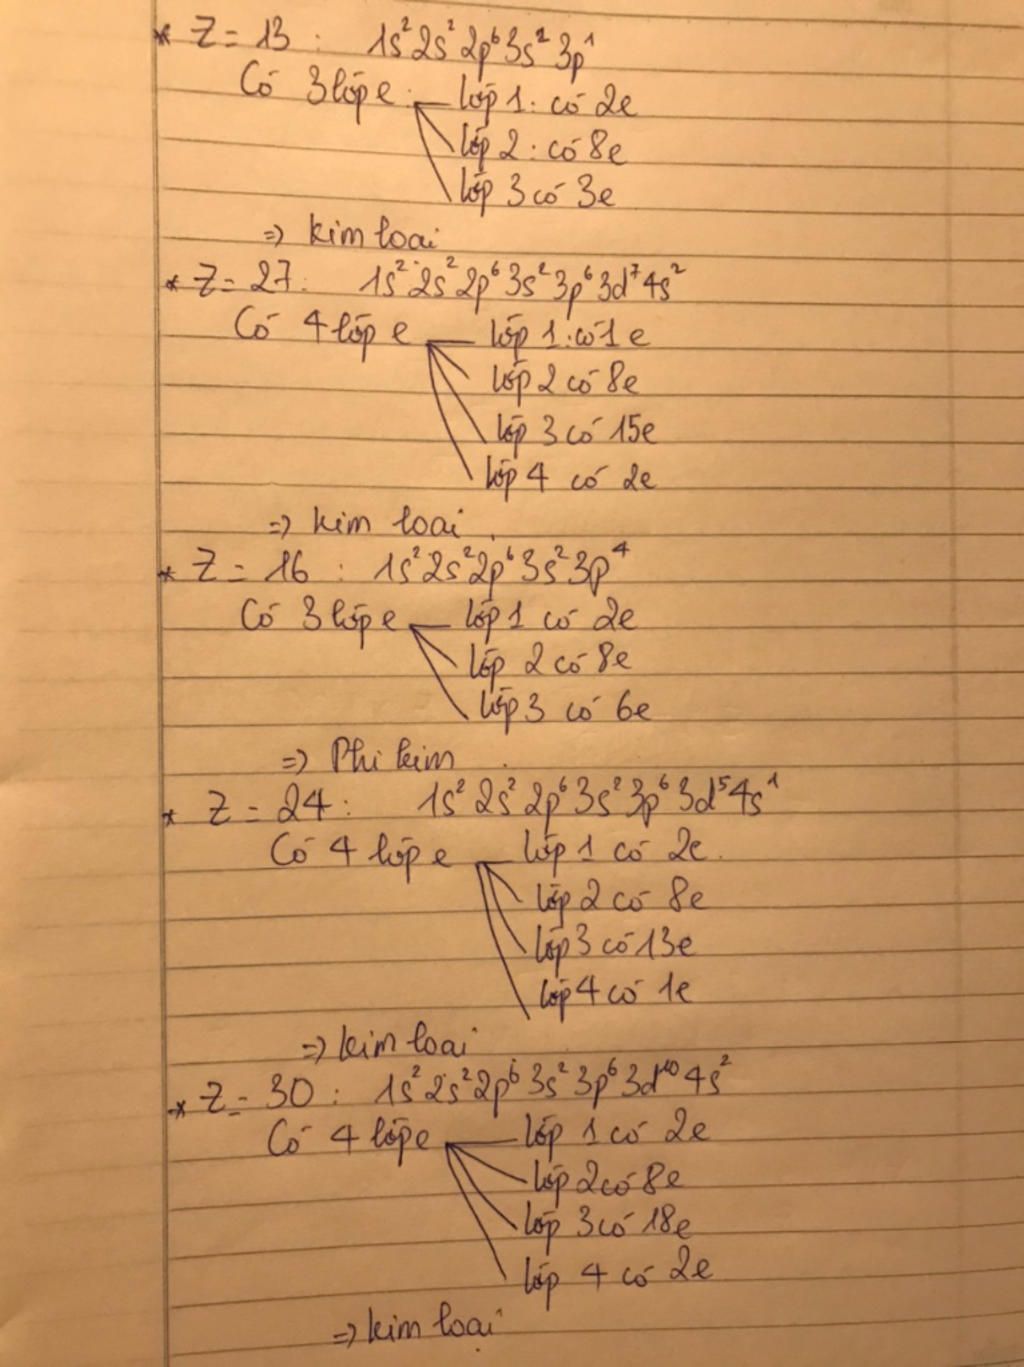 * Z = 13 : 1s² 2s² 2p⁶ 3s² 3p¹
Có 3 lớp e : lớp 1 : có 2e
lớp 2 : có 8e
lớp 3 có 3e
=> kim loại
* Z = 27 : 1s² 2s² 2p⁶ 3s² 3p⁶ 3d⁷ 4s²
Có 4 lớp e lớp 1 : có 1 e
lớp 2 có 8e
lớp 3 có 15e
lớp 4 có 2e
=> kim loại
* Z = 16 : 1s² 2s² 2p⁶ 3s² 3p⁴
Có 3 lớp e lớp 1 có 2e
lớp 2 có 8e
lớp 3 có 6e
=> Phi kim
* Z = 24 : 1s² 2s² 2p⁶ 3s² 3p⁶ 3d⁵ 4s¹
Có 4 lớp e lớp 1 có 2e.
lớp 2 có 8e
lớp 3 có 13e
lớp 4 có 1e
=> kim loại
* Z = 30 : 1s² 2s² 2p⁶ 3s² 3p⁶ 3d¹⁰ 4s²
Có 4 lớp e lớp 1 có 2e
lớp 2 có 8e
lớp 3 có 18e
lớp 4 có 2e
=> kim loại